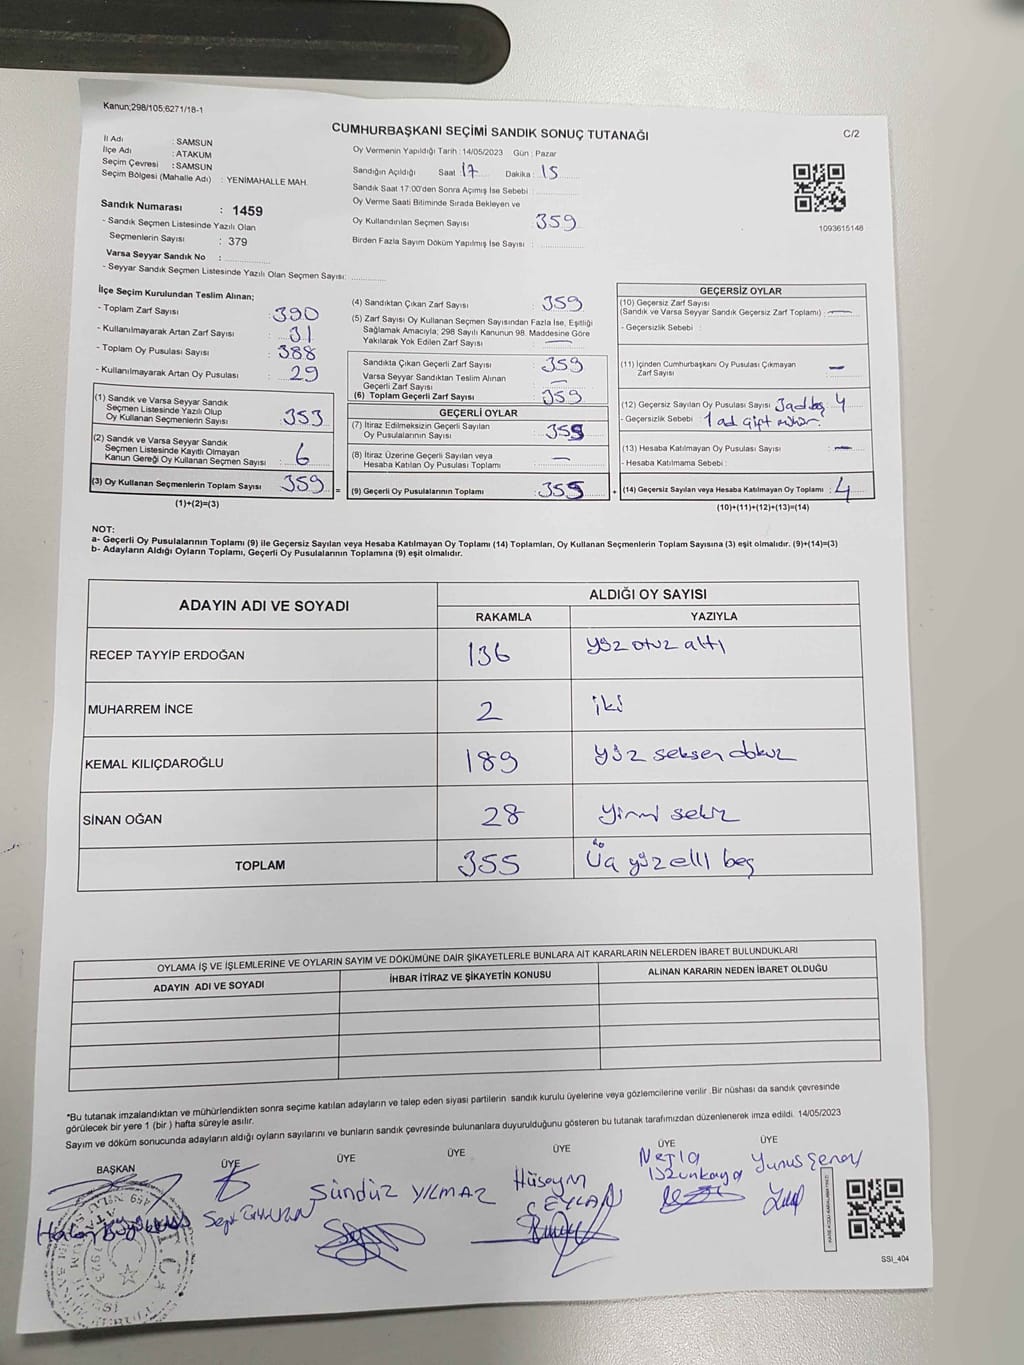 Kanun;298/105;6271/18-1
CUMHURBAŞKANI SEÇİMİ SANDIK SONUÇ TUTANAĞI
C/2
İl Adı : SAMSUN
İlçe Adı : ATAKUM
Seçim Çevresi : SAMSUN
Seçim Bölgesi (Mahalle Adı) : YENİMAHALLE MAH.
Sandık Numarası : 1459
- Sandık Seçmen Listesinde Yazılı Olan
Seçmenlerin Sayısı : 379
Varsa Seyyar Sandık No :
- Seyyar Sandık Seçmen Listesinde Yazılı Olan Seçmen Sayısı:
Oy Vermenin Yapıldığı Tarih : 14/05/2023 Gün : Pazar
Sandığın Açıldığı Saat : 17 Dakika : 15
Sandık Saat 17:00'den Sonra Açımış İse Sebebi :
Oy Verme Saati Bitiminde Sırada Bekleyen ve
Oy Kullandırılan Seçmen Sayısı 359
Birden Fazla Sayım Döküm Yapılmış İse Sayısı :
1093615146
İlçe Seçim Kurulundan Teslim Alınan;
- Toplam Zarf Sayısı : 390
- Kullanılmayarak Artan Zarf Sayısı : 31
- Toplam Oy Pusulası Sayısı : 388
- Kullanılmayarak Artan Oy Pusulası : 29
(1) Sandık ve Varsa Seyyar Sandık
Seçmen Listesinde Yazılı Olup
Oy Kullanan Seçmenlerin Sayısı : 353
(2) Sandık ve Varsa Seyyar Sandık
Seçmen Listesinde Kayıtlı Olmayan
Kanun Gereği Oy Kullanan Seçmen Sayısı : 6
(3) Oy Kullanan Seçmenlerin Toplam Sayısı : 359
(1)+(2)=(3)
=
(4) Sandıktan Çıkan Zarf Sayısı : 359
(5) Zarf Sayısı Oy Kullanan Seçmen Sayısından Fazla İse, Eşitliği
Sağlamak Amacıyla; 298 Sayılı Kanunun 98. Maddesine Göre
Yakılarak Yok Edilen Zarf Sayısı : —
Sandıkta Çıkan Geçerli Zarf Sayısı : 359
Varsa Seyyar Sandıktan Teslim Alınan
Geçerli Zarf Sayısı : —
(6) Toplam Geçerli Zarf Sayısı : 359
GEÇERLİ OYLAR
(7) İtiraz Edilmeksizin Geçerli Sayılan
Oy Pusulalarının Sayısı : 355
(8) İtiraz Üzerine Geçerli Sayılan veya
Hesaba Katılan Oy Pusulası Toplamı : —
(9) Geçerli Oy Pusulalarının Toplamı : 355
+
GEÇERSİZ OYLAR
(10) Geçersiz Zarf Sayısı
(Sandık ve Varsa Seyyar Sandık Geçersiz Zarf Toplamı) : —
- Geçersizlik Sebebi :
(11) İçinden Cumhurbaşkanı Oy Pusulası Çıkmayan
Zarf Sayısı : —
(12) Geçersiz Sayılan Oy Pusulası Sayısı : 3 ad boş 4
- Geçersizlik Sebebi : 1 ad çift mühür
(13) Hesaba Katılmayan Oy Pusulası Sayısı : —
- Hesaba Katılmama Sebebi :
(14) Geçersiz Sayılan veya Hesaba Katılmayan Oy Toplamı : 4
(10)+(11)+(12)+(13)=(14)
NOT:
a- Geçerli Oy Pusulalarının Toplamı (9) ile Geçersiz Sayılan veya Hesaba Katılmayan Oy Toplamı (14) Toplamları, Oy Kullanan Seçmenlerin Toplam Sayısına (3) eşit olmalıdır. (9)+(14)=(3)
b- Adayların Aldığı Oyların Toplamı, Geçerli Oy Pusulalarının Toplamına (9) eşit olmalıdır.
ADAYIN ADI VE SOYADI
ALDIĞI OY SAYISI
RAKAMLA YAZIYLA
RECEP TAYYİP ERDOĞAN 136 yüz otuz altı
MUHARREM İNCE 2 iki
KEMAL KILIÇDAROĞLU 189 yüz seksen dokuz
SİNAN OĞAN 28 yirmi sekiz
TOPLAM 355 Üç yüz elli beş
OYLAMA İŞ VE İŞLEMLERİNE VE OYLARIN SAYIM VE DÖKÜMÜNE DAİR ŞİKAYETLERLE BUNLARA AİT KARARLARIN NELERDEN İBARET BULUNDUKLARI
ADAYIN ADI VE SOYADI İHBAR İTİRAZ VE ŞİKAYETİN KONUSU ALINAN KARARIN NEDEN İBARET OLDUĞU
*Bu tutanak imzalandıktan ve mühürlendikten sonra seçime katılan adayların ve talep eden siyasi partilerin sandık kurulu üyelerine veya gözlemcilerine verilir. Bir nüshası da sandık çevresinde
görülecek bir yere 1 (bir ) hafta süreyle asılır.
Sayım ve döküm sonucunda adayların aldığı oyların sayılarını ve bunların sandık çevresinde bulunanlara duyurulduğunu gösteren bu tutanak tarafımızdan düzenlenerek imza edildi. 14/05/2023
BAŞKAN ÜYE ÜYE ÜYE ÜYE ÜYE ÜYE
Sündüz YILMAZ
Hüseyin
CEYLAN
Necla
Uzunkaya
Yunus Şenay
T.C.
SSI_404